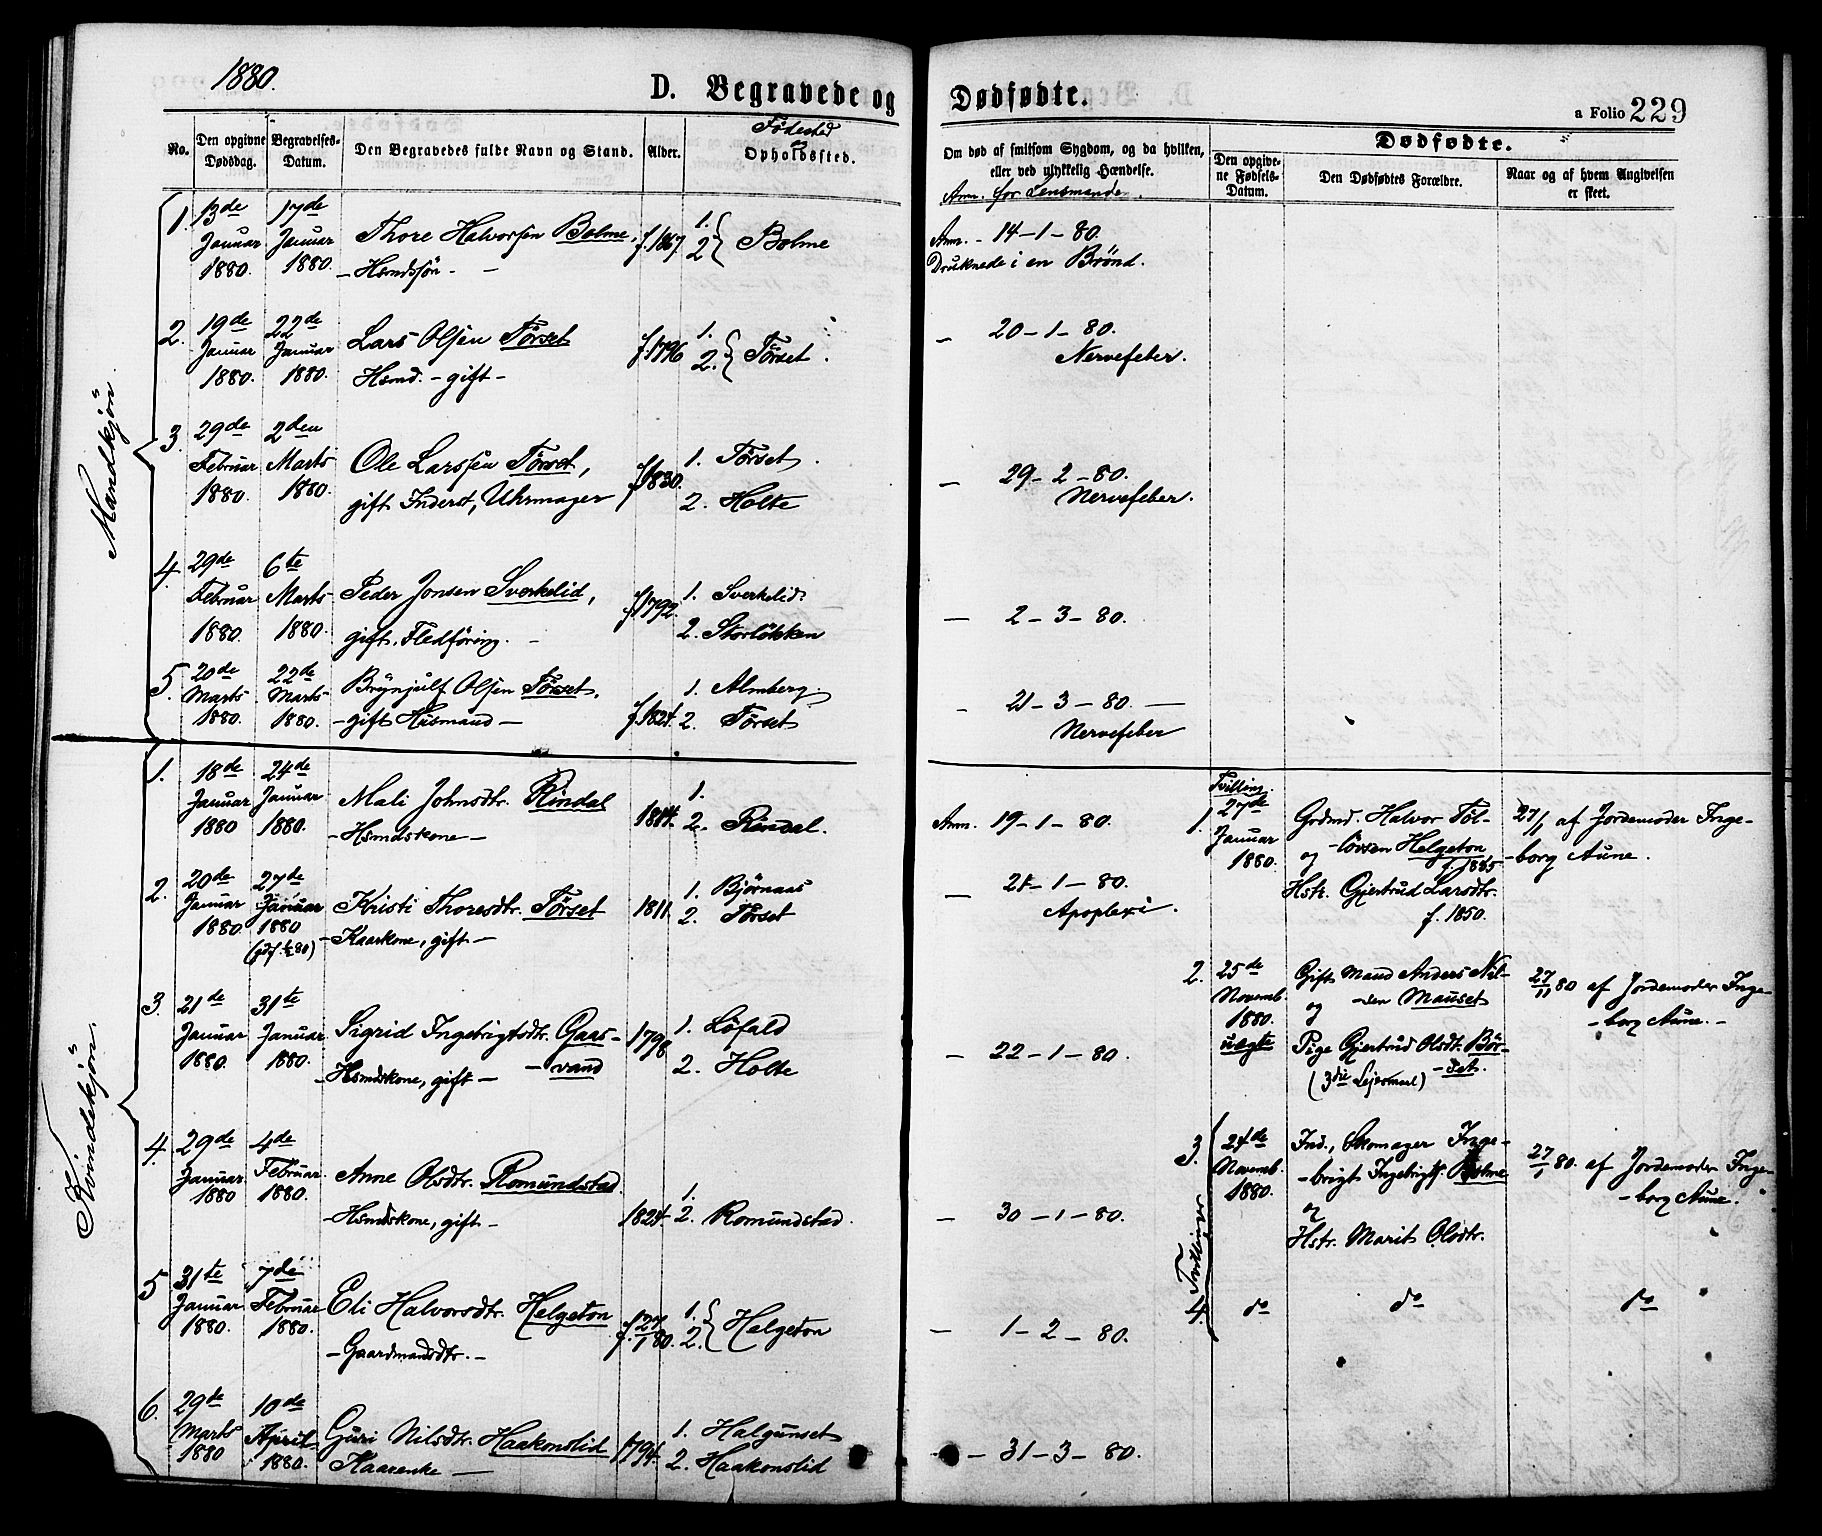 1880.
D. Begravede og Dødfødte.
a Folio 229
No.
Den opgivne Dødsdag.
Begravelses-Datum.
Den Begravedes fulde Navn og Stand.
Alder.
Fødested og Opholdssted.
Om død af smitsom Sygdom, og da hvilken, eller ved ulykkelig Hændelse.
Anm. for Lensmanden.
Dødfødte.
Den opgivne Fødsels-Datum.
Den Dødfødtes Forældre.
Naar og af hvem Angivelsen er skeet.
Mandkjön.
1. 13de Januar 1880. 17de Januar 1880. Thore Halvorsen Bolme, f. 1867. 1. 2 } Bolme
- Hsmdssön -
Anm. - 14-1-80.
Druknede i en Brönd.
2. 19de Januar 1880. 22de Januar 1880. Lars Olsen Törset f. 1796 1. 2. } Törset.
Hsmd. - gift -
- 20-1-80.
Nervefeber.
3. 29de Februar 1880. 2den Marts 1880. Ole Larssen Törset, f. 1830. 1. Törset.
gift Inderst, Uhrmager 2. Holte
- 29-2-80.
Nervefeber.
4. 29de Februar 1880. 6te Marts 1880. Peder Jonsen Sverkelid, f. 1792. 1. Sverkelid.
gift. Fledföring. - 2. Storlökken
- 2-3-80.
5. 20de Marts 1880. 22de Marts 1880. Brynjulf Olsen Törset, f. 1824. 1. Almberg.
- gift Husmand - 2. Törset
- 21-3-80. -
Nervefeber
Kvindekjön.
1. 18de Januar 1880 24de Januar 1880. Mali Johnsdtr. Rindal 1814. 1.
- Hsmdskone - 2. Rindal.
Anm. 19-1-80.
2. 20de Januar 1880. 27de Januar 1880 Kristi Thoresdtr. Törset 1811. 1. Björnaas
- Kaarkone, gift - 2. Törset
- 21-1-80.
Apoplexi.
3. 21de Januar 1880. 31te Januar 1880. Sigrid Ingebrigtsdtr. Gaas- 1798 1. Löfald
- Hsmdskone, gift - - vand 2. Holte
- 22-1-80.
4. 29de Januar 1880 4de Februar 1880. Anne Olsdtr. Romundstad. 1824. 1.
- Hsmdskone, gift - 2. Romundstad.
- 30-1-80.
5 31te Januar 1880. 7de Februar 1880. Eli Halvorsdtr. Helgeton f. 27/1 80. 1. 2. } Helgeton
- Gaardmandsdtr. -
- 1-2-80.
6. 29de Marts 1880 10de April 1880. Guri Nilsdtr. Haakonslid 1794. 1. Halgunset
Kaarenke - 2. Haakonslid
- 31-3-80.
Tvilling.
1. 27de Januar 1880. Grdmd. Halvor Föl-
- lövsen Helgeton
og
Hstr. Gjertrud Larsdtr. f. 1850.
27/1 af Jordemoder Inge-
- borg Aune.
2. 25de Novemb. 1880. uægte Gift Mand Anders Nil-
- sen Mauset
og
Pige Gjertrud Olsdt. Bör-
- set.
(3die Leiermaal)
27/11 80 af Jordemoder Inge-
- borg Aune. -
Tvillinger
3. 24de Novemb. 1880. Ind., Skomager Inge-
- brigt Ingebrigts. Bolme
og
Hstr. Marit Olsdtr.
27/1 80. af Jordemoder Inge-
- borg Aune.
4. do do do